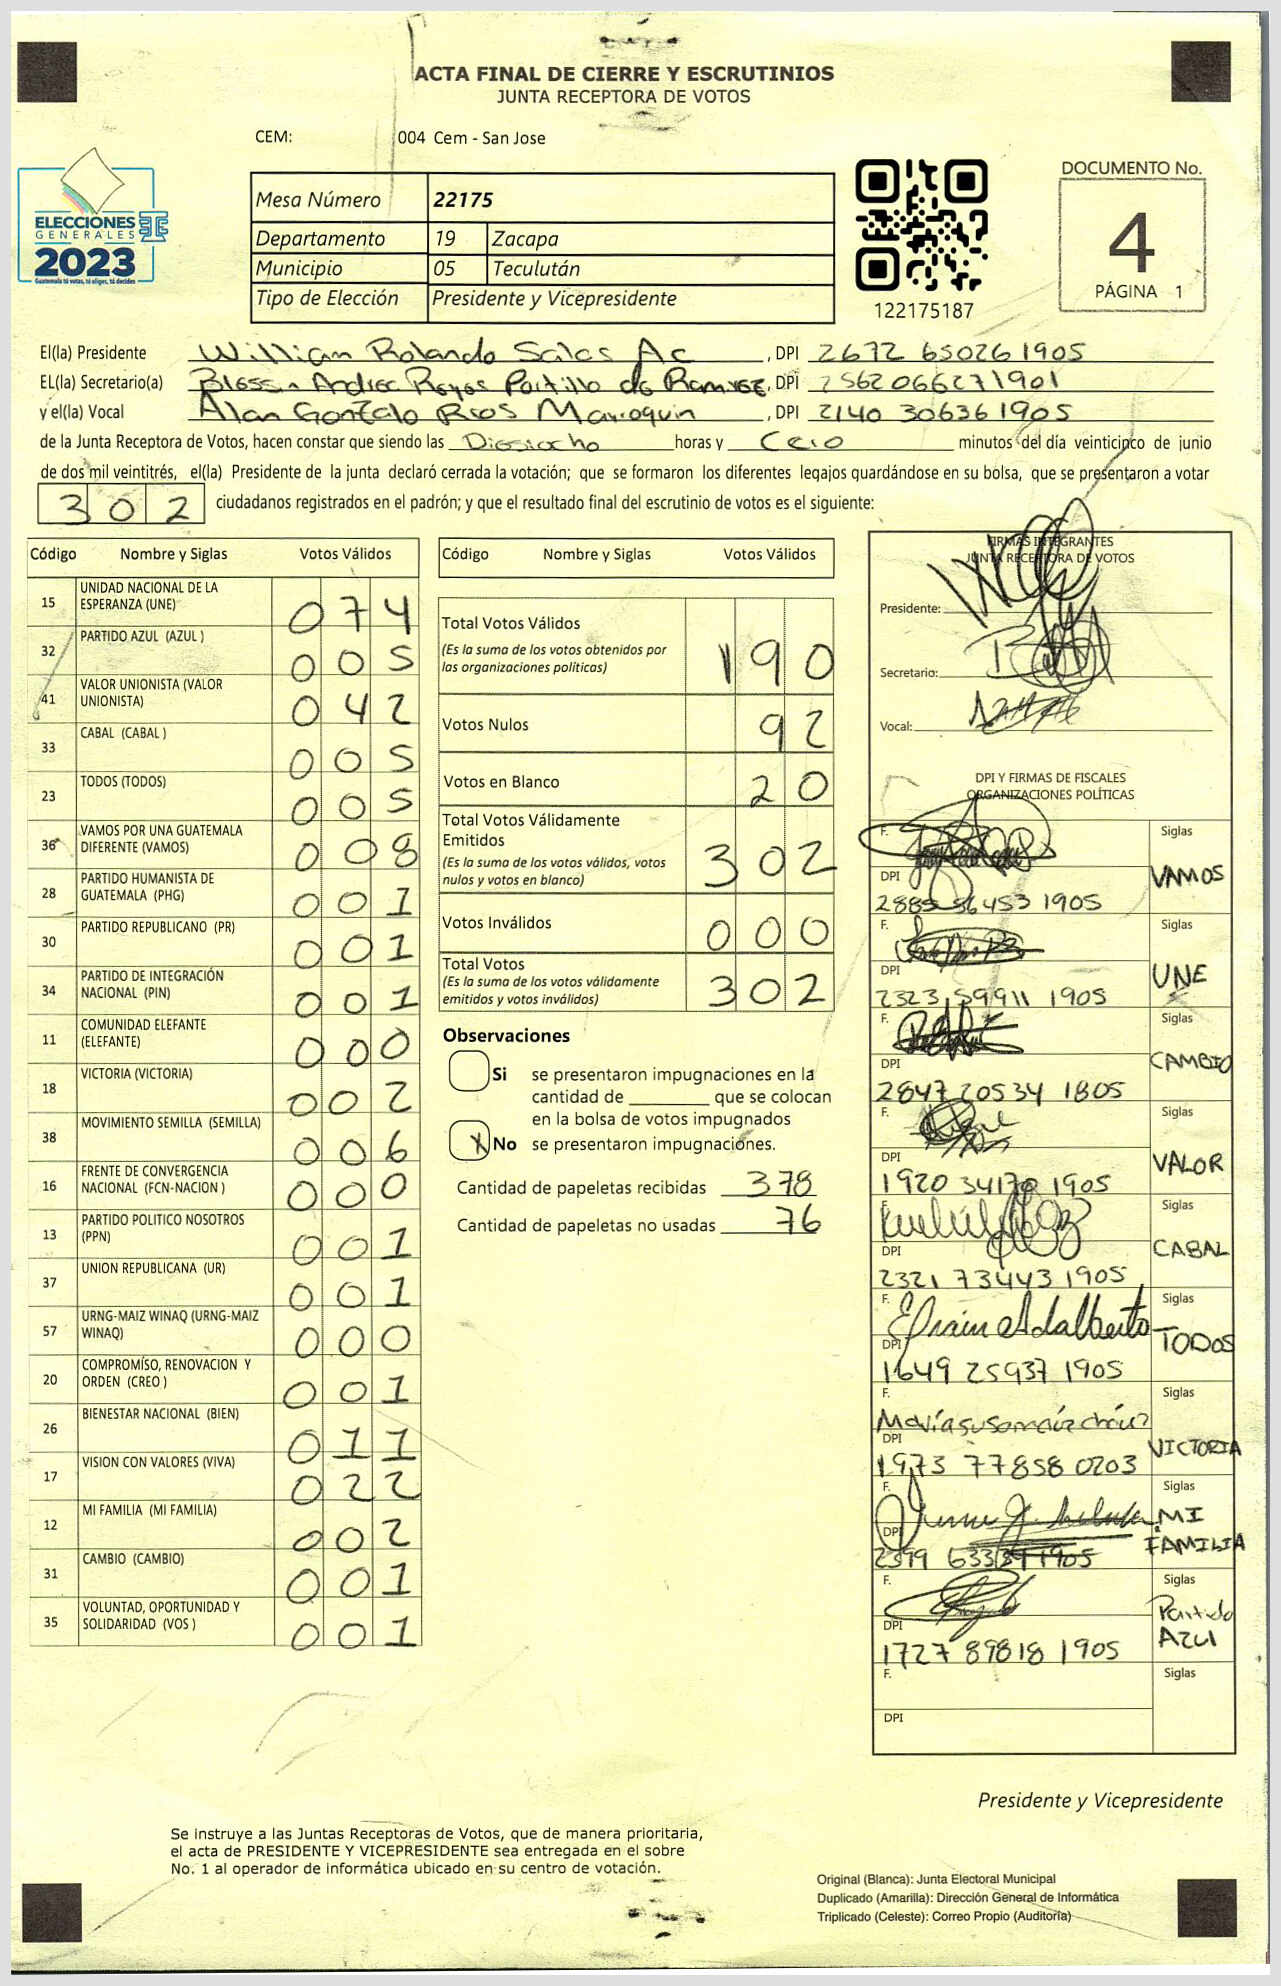 ACTA FINAL DE CIERRE Y ESCRUTINIOS
JUNTA RECEPTORA DE VOTOS
CEM: 004 Cem - San Jose
ELECCIONES
GENERALES
2023
Guatemala tú votas, tú eliges, tú decides
Mesa Número 22175
Departamento 19 Zacapa
Municipio 05 Teculután
Tipo de Elección Presidente y Vicepresidente
122175187
DOCUMENTO No.
4
PÁGINA 1
El(la) Presidente Willian Rolando Salas Ac, DPI 2672 65026 1905
EL(la) Secretario(a) Andrea Reyes Portillo de Ramirez, DPI 2562066271901
y el(la) Vocal Alan Gonzalo Rios Marroquin, DPI 2140 30636 1905
de la Junta Receptora de Votos, hacen constar que siendo las Diesiocho horas y Cero minutos del día veinticinco de junio
de dos mil veintitrés, el(la) Presidente de la junta declaró cerrada la votación; que se formaron los diferentes legajos quardándose en su bolsa, que se presentaron a votar
302 ciudadanos registrados en el padrón; y que el resultado final del escrutinio de votos es el siguiente:
Código Nombre y Siglas Votos Válidos
15 UNIDAD NACIONAL DE LA ESPERANZA (UNE) 074
32 PARTIDO AZUL (AZUL ) 005
41 VALOR UNIONISTA (VALOR UNIONISTA) 042
33 CABAL (CABAL ) 005
23 TODOS (TODOS) 005
36 VAMOS POR UNA GUATEMALA DIFERENTE (VAMOS) 008
28 PARTIDO HUMANISTA DE GUATEMALA (PHG) 001
30 PARTIDO REPUBLICANO (PR) 001
34 PARTIDO DE INTEGRACIÓN NACIONAL (PIN) 001
11 COMUNIDAD ELEFANTE (ELEFANTE) 000
18 VICTORIA (VICTORIA) 002
38 MOVIMIENTO SEMILLA (SEMILLA) 006
16 FRENTE DE CONVERGENCIA NACIONAL (FCN-NACION ) 000
13 PARTIDO POLITICO NOSOTROS (PPN) 001
37 UNION REPUBLICANA (UR) 001
57 URNG-MAIZ WINAQ (URNG-MAIZ WINAQ) 000
20 COMPROMÍSO, RENOVACION Y ORDEN (CREO ) 001
26 BIENESTAR NACIONAL (BIEN) 011
17 VISION CON VALORES (VIVA) 022
12 MI FAMILIA (MI FAMILIA) 002
31 CAMBIO (CAMBIO) 001
35 VOLUNTAD, OPORTUNIDAD Y SOLIDARIDAD (VOS ) 001
Código Nombre y Siglas Votos Válidos
Total Votos Válidos 190
(Es la suma de los votos obtenidos por
las organizaciones políticas)
Votos Nulos 92
Votos en Blanco 20
Total Votos Válidamente
Emitidos 302
(Es la suma de los votos válidos, votos
nulos y votos en blanco)
Votos Inválidos 000
Total Votos 302
(Es la suma de los votos válidamente
emitidos y votos inválidos)
Observaciones
Si se presentaron impugnaciones en la
cantidad de ________ que se colocan
en la bolsa de votos impugnados
X No se presentaron impugnaciones.
Cantidad de papeletas recibidas 378
Cantidad de papeletas no usadas 76
FIRMAS INTEGRANTES
JUNTA RECEPTORA DE VOTOS
Presidente:
Secretario:
Vocal:
DPI Y FIRMAS DE FISCALES
ORGANIZACIONES POLÍTICAS
F. Siglas
DPI VAMOS
2885 56453 1905
F. Siglas
DPI UNE
2323 59911 1905
F. Siglas
DPI CAMBIO
2847 20534 1805
F. Siglas
DPI VALOR
1920 34170 1905
F. Siglas
DPI CABAL
2321 73443 1905
F. Efrain Adalberto Siglas
DPI TODOS
1649 25937 1905
F. Siglas
DPI VICTORIA
1973 77858 0203
F. Siglas
DPI MI FAMILIA
2399 63339 1905
F. Siglas
DPI Partido Azul
1727 89818 1905
F. Siglas
DPI
Presidente y Vicepresidente
Se instruye a las Juntas Receptoras de Votos, que de manera prioritaria,
el acta de PRESIDENTE Y VICEPRESIDENTE sea entregada en el sobre
No. 1 al operador de informática ubicado en su centro de votación.
Original (Blanca): Junta Electoral Municipal
Duplicado (Amarilla): Dirección General de Informática
Triplicado (Celeste): Correo Propio (Auditoría)